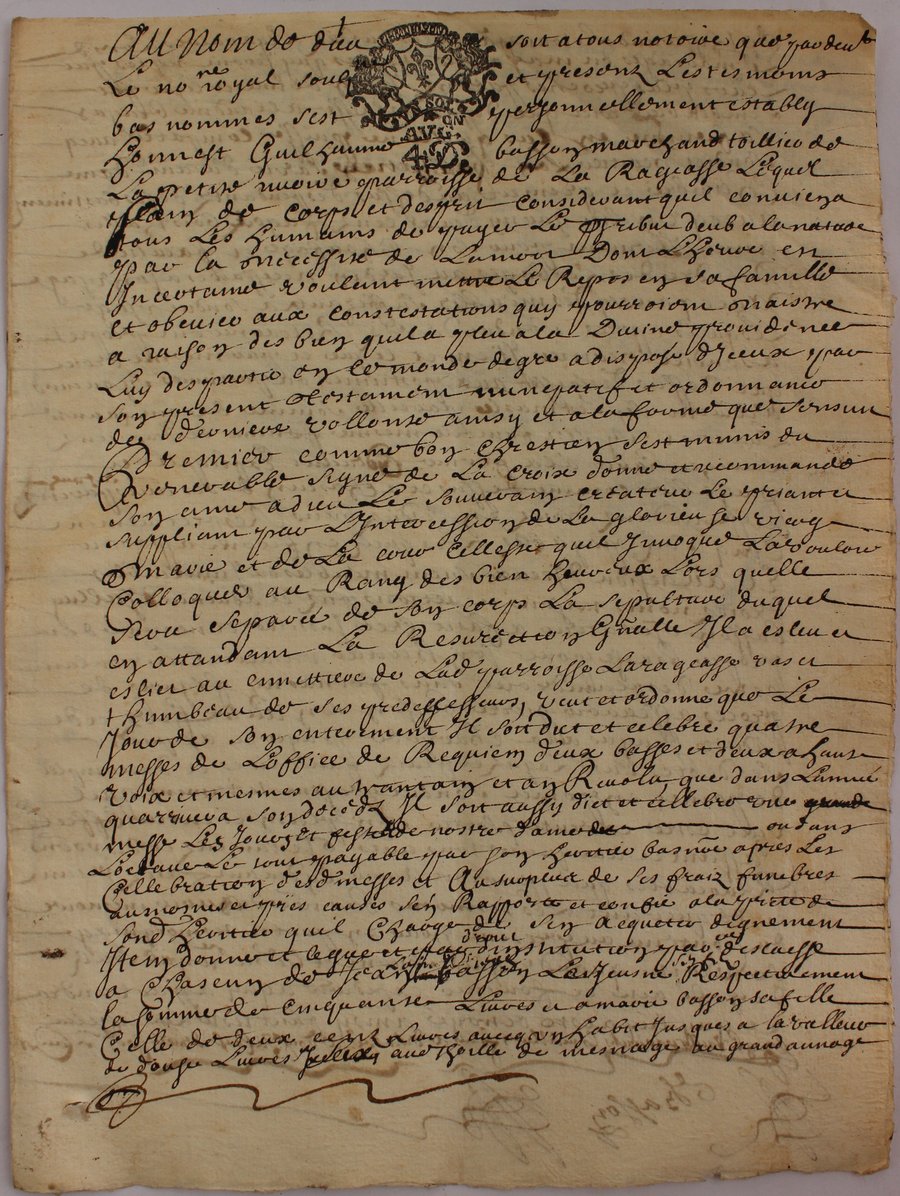 Au Nom de dieu soit a tous notoire que pardeut
Le no.re royal soub et presenz Les tesmoins
bas nommes sest personnellement estably
Honnest Guilhaume basson marchand toillier de
La petite parroisse de La Rageasse Lequel
plain de corps et desprit considerant quil conviena
tous Les humains de payer Le tribut deub a la nature
par la necessite de Lamort Dont Lheure en
Incertaine voulant mettre Le Repos en sa famille
et obeuier aux constestations quy pourroient naistre
a raison des bien quil a pleu a la Divine providence
Luy despartir en le monde de gre a dispose Diceux par
son present testament nuncupatif et ordonnance
de derniere vollonte ainsy et a la forme que sensuit
Premier comme bon chrestien sest munis du
venerable signe de La croix donne et recommande
son ame a dieu Le souverain createur Le priant et
suppliant par L'Intercession de La glorieuse vierge
marie et de La cour Cellesse quil Invoque La vouloir
Colloquer au Rang des bien heureux Lors quelle
sera separee de son corps La sepulture duquel
en attandant La Resurection Gnalle Il a esleu et
eslict au cimettiere de Lad parroisse Larageasse vas et
thumbeau de ses predessesseurs, veut et ordonne que Le
Jour de son enterement Il soit dict et celebre quatre
messes de L'office de Requiem deux basses et deux a haute
voix et mesmes au trantain et an Revolu que dans Lannee
quarrivera son deceds Il soit aussy dict et cellebre une grande
messe Les Jours et feste de nostre dame de ou dans
Loctave Le tout payable par son heritier bas nõe apres Les
Cellebration desd messes et Au surplus de ses fraiz funebres
aumosnes et pies causes sen Rapporte et confie a la piete de
sond heritier quil Charge de sen acquetter dignement
Item donne et legue et par droit institution par
a Chascun de Jean basson Le Jeusne Respectivement
la somme de cinquante Livres et a marie basson sa fille
Celle de deux cent Livres avec un habit Jusques a la valleur
de douze Livres thoille de mesnage au grand aunage